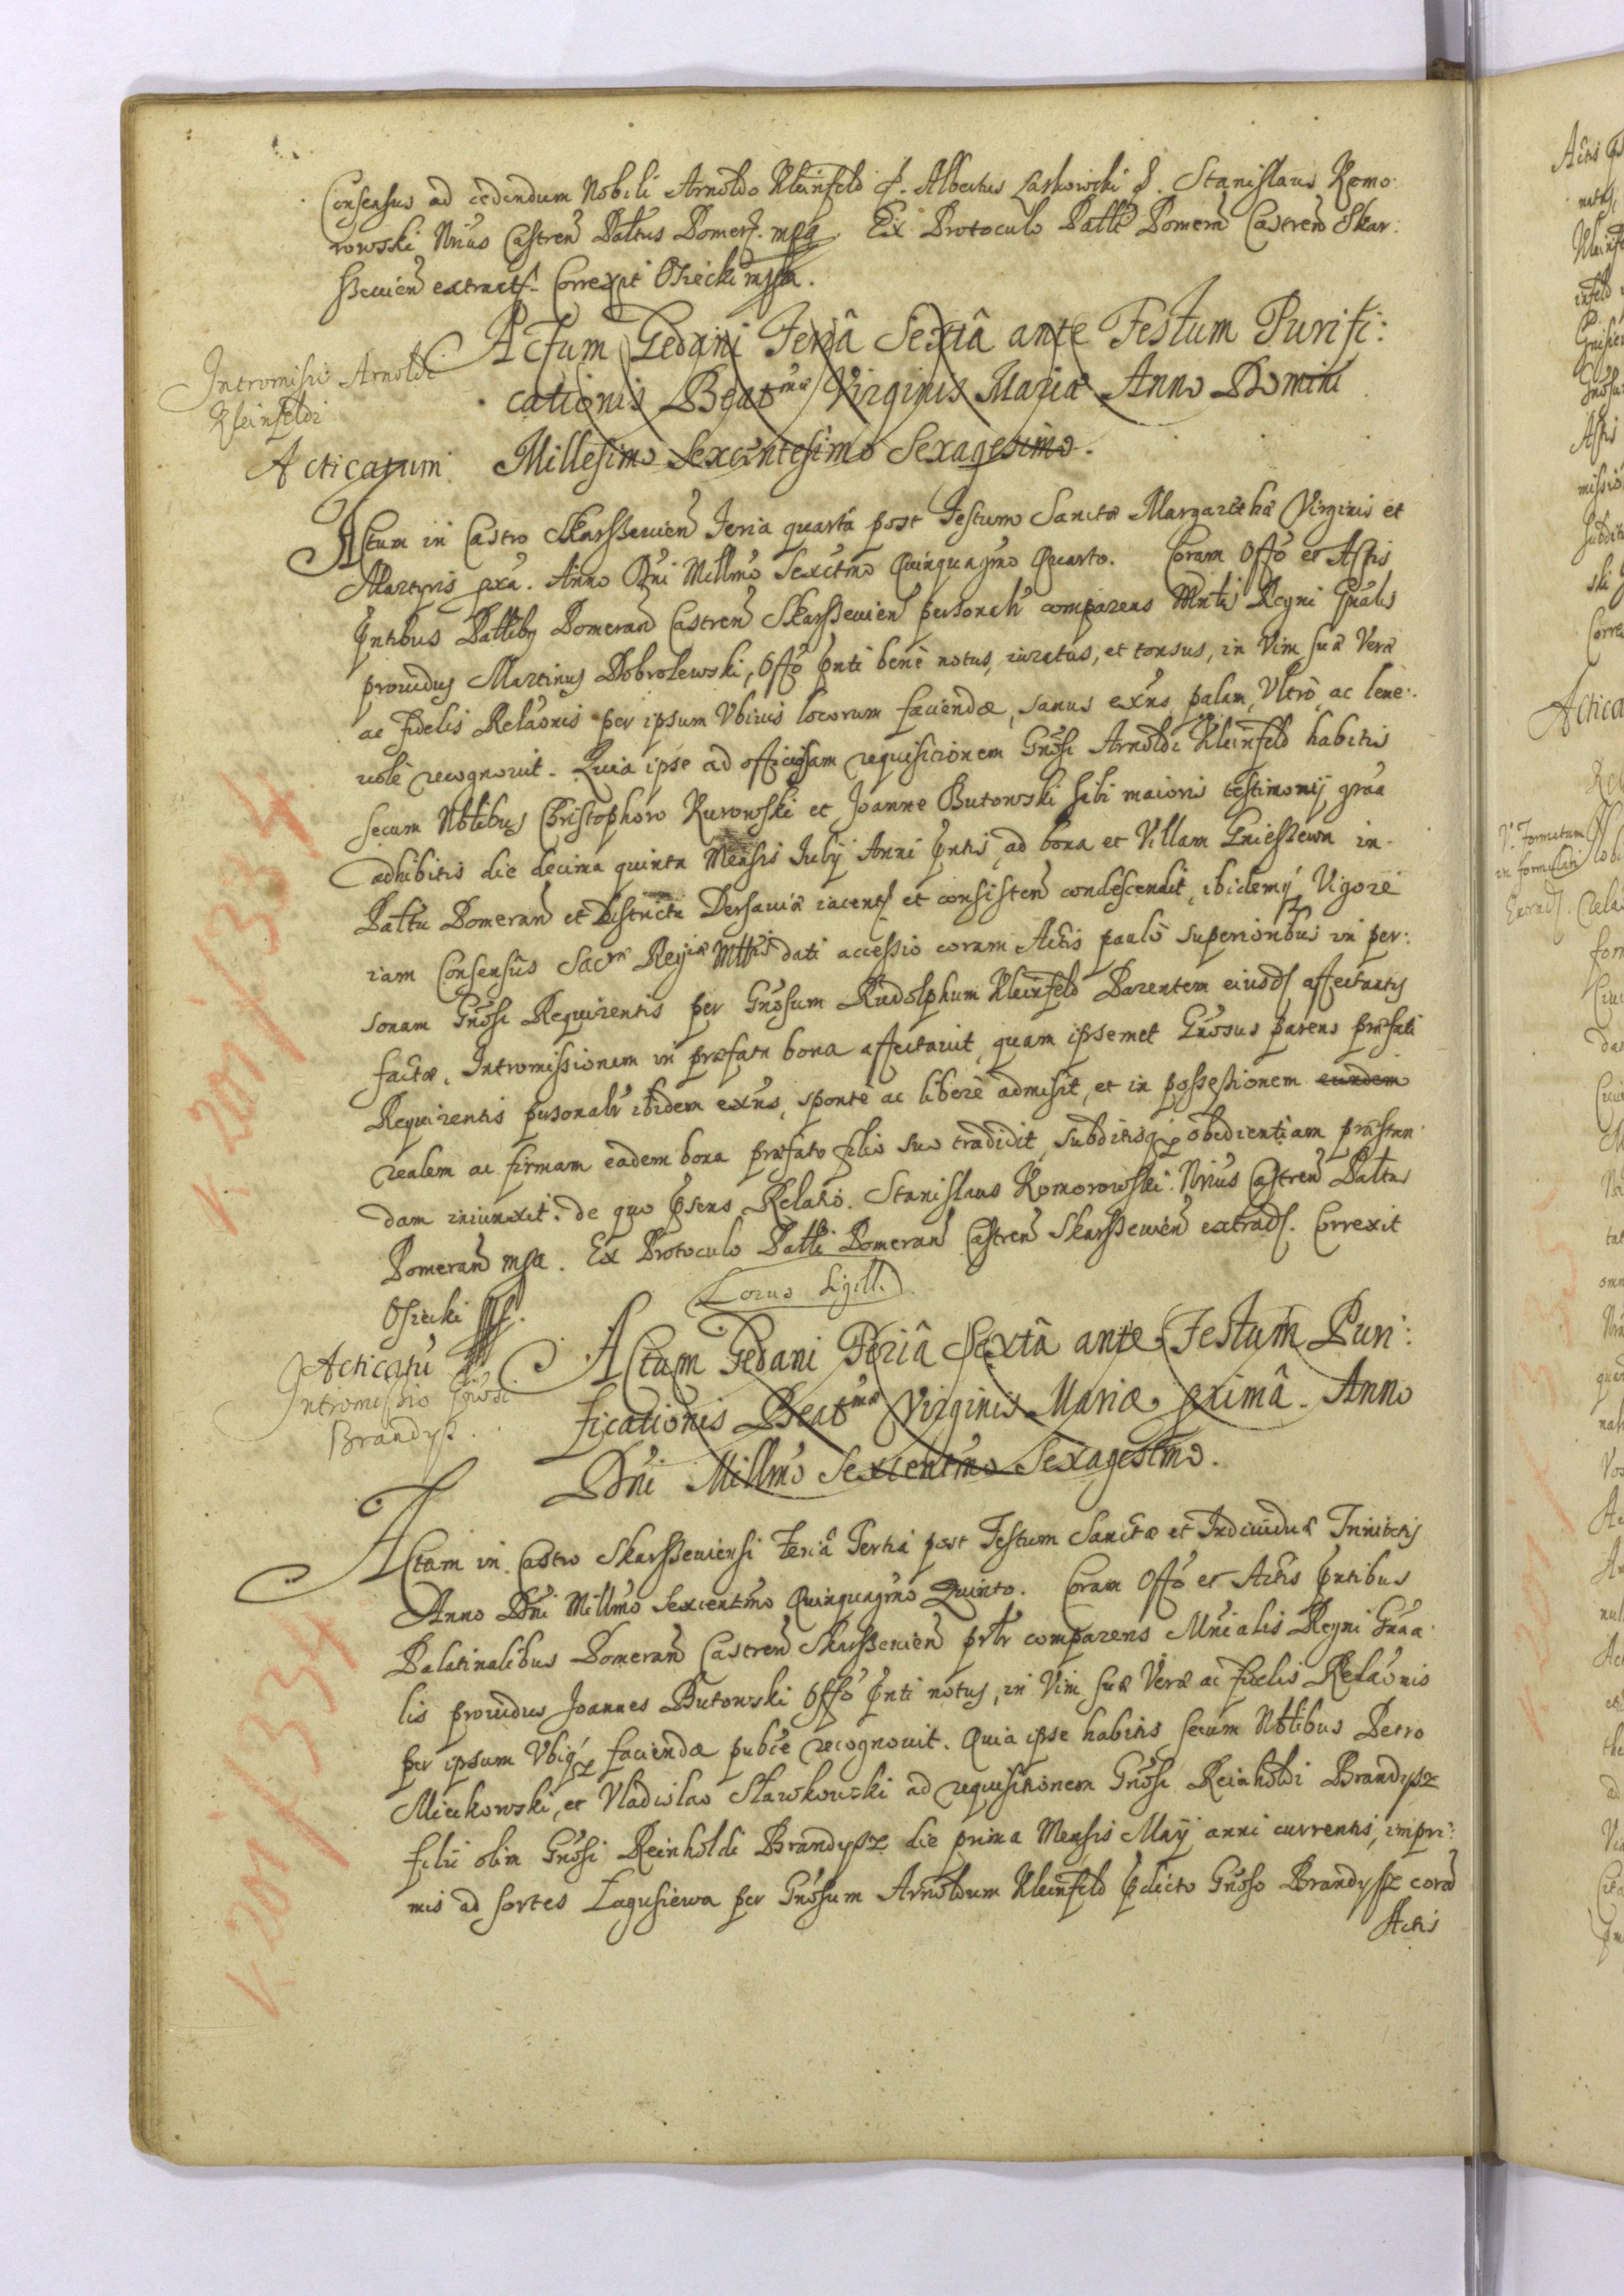 Consensus ad cedendum Nobili Arnoldo Kleinfeld P. Albertus Laskowski P. Stanislaus Komo:
rowski Nrius Castren Paltus Pomer. mpa Ex Protoculo Paltt Pomeran Castren Skar:
ssevien extract. Correxit Osiecki mpa.
Intromissio Arnoldi
Kleinfeldi
Actum Gedani Feriâ Sextâ ante Festum Purifi:
cationis Beatmæ Virginis Mariæ Anno Domini
Acticatum. Millesimo Sexcentesimo Sexagesimo.
Actum in Castro Skarsseuien Feria quarta post Festum Sanctæ Margarethæ Virginis et
Martyris pxa. Anno Dni Millmo Sexctmo Quinquagmo Quarto. Coram Offo et Actis
Pntibus Palttibus Pomeran Castren Skarsseuien personalr comparens Mntlis Regni Gnalis
prouidus Martinus Dobrolewski, Offo Pnti bene notus, iuratus, et tonsus, in Vim suæ Veræ
ac Fidelis Relaonis per ipsum Vbiuis locorum faciendæ, sanus exns, palam, Vltrò, ac bene:
uolè recognouit. Quia ipse ad officiosam requisicionem Gnosi Arnoldi Kleinfeld habitis
secum Nbtibus Christophoro Kurowski et Joanne Butowski sibi maioris testimonij graa
adhibitis die decima quinta Mensis Julij Anni Pntis, ad bona et Villam Gniessewn in
Paltu Pomeran et Districtu Dersauiæ iacent et consisten condescendit, ibidemq Vigore
iam Consensûs Sacræ Regiæ Mttis dati accessio coram Actis paulò superioribus in per:
sonam Gnosi Requirentis per Gnosum Rudolphum Kleinfeld Parentem eiusd affectatus
factæ, Intromissionem in præfata bona affectauit, quam ipsemet Gnosus parens præfati
Requirentis personalr ibidem exns, sponte ac liberè admisit, et in possessionem eundem
realem ac firmam eadem bona præfato filio suo tradidit, subditisq obedientiam præstan
dam iniunxit. de quo Psens Relatio. Stanislaus Komorowski Nrius Castren Paltus
Pomeran mpa. Ex Protoculo Paltti Pomeran Castren Skarsseuien extrad. Correxit
Osiecki
Locus Sigill.
Acticatu
Intromissio Gnosi
Brandysz.
Actum Gedani Feriâ Sextâ ante Festum Puri:
ficationis Beatmæ Virginis Mariæ pximâ. Anno
Dni Millmo Sexcentmo Sexagesimo.
Actum in Castro Skarsseuiensi Feriâ Tertia post Festum Sanctæ et Indiuiduæ Trinitatis
Anno Dni Millmo Sexcentmo Quinquagmo Quinto. Coram Offo et Actis Pntibus
Palatinalibus Pomeran Castren Skarsseuien prlr comparens Mnialis Regni Gnaa
lis prouidus Joannes Butowski Offo Pnti notus, in Vim suæ Veræ ac fidelis Relaonis
per ipsum Vbiq faciendæ publce recognouit. Quia ipse habitis secum Nbtibus Petro
Mieckowski, et Vladislao Sławkowski ad requisitionem Gnosi Reinholdi Brandysz
filii olim Gnosi Reinholdi Brandysz die prima Mensis Maij anni currentis, impri:
mis ad sortes Lagusiewa per Gnosum Arnoldum Kleinfeld Pdicto Gnoso Brandysz cora
Actis
K 201/334
K 201/334